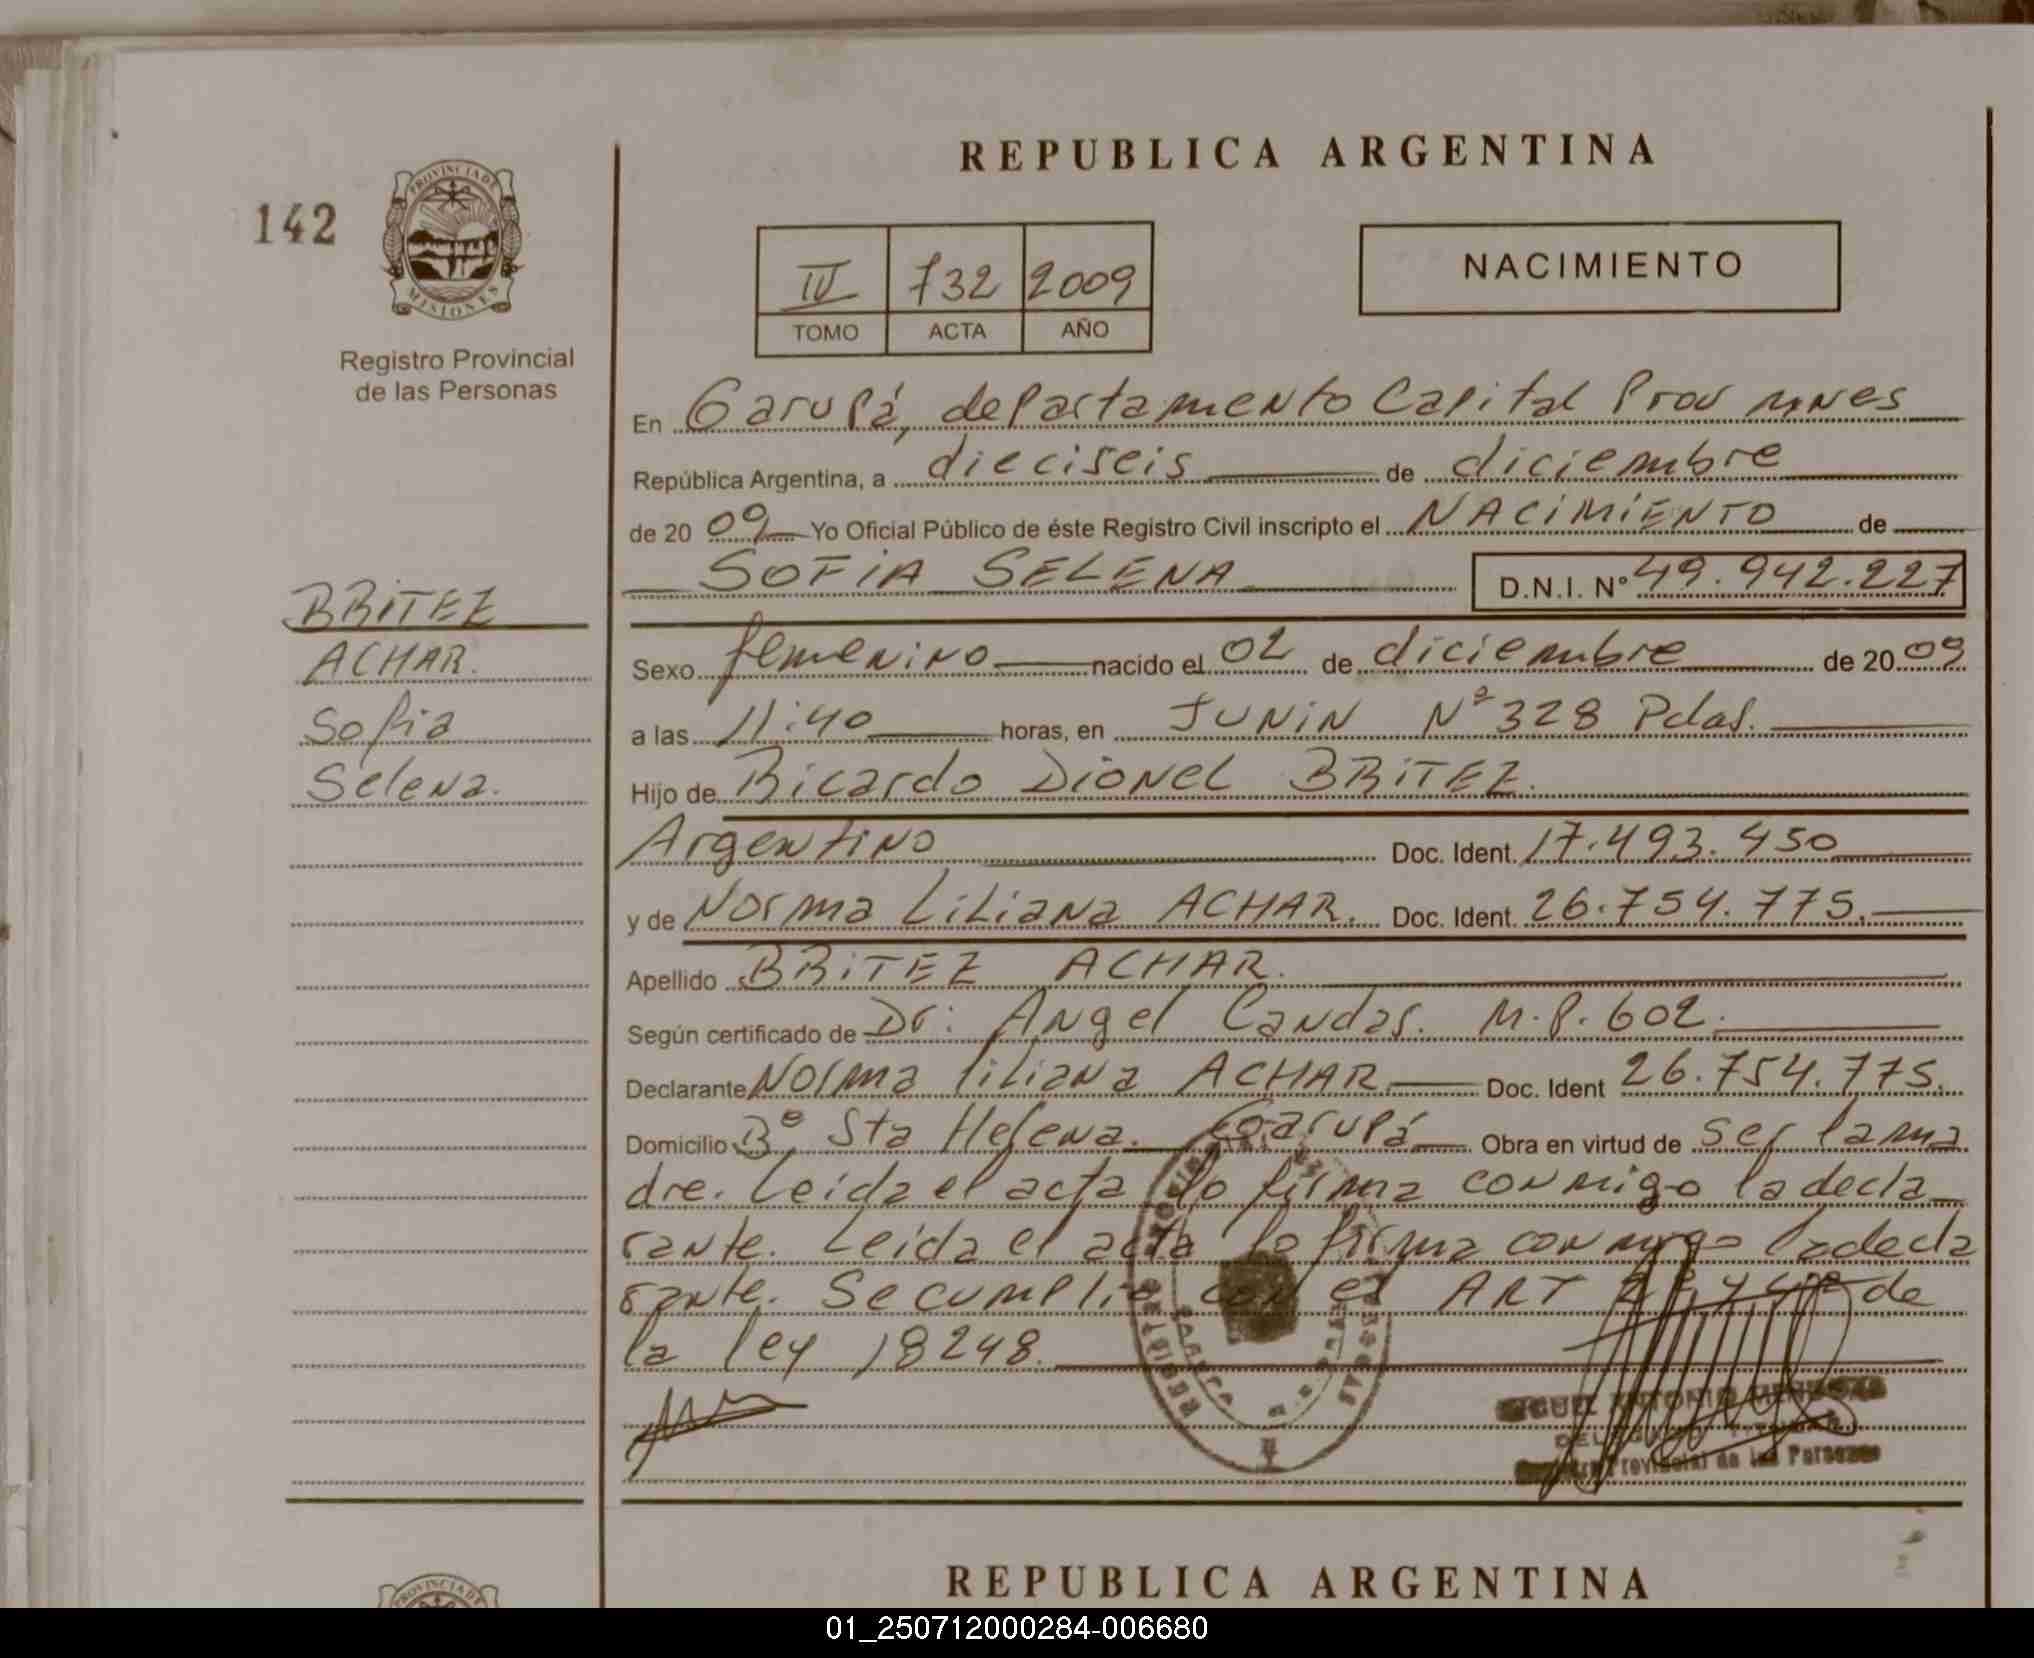 REPUBLICA ARGENTINA
142
PROVINCIA DE
MISIONES
Registro Provincial
de las Personas
IV 732 2009
TOMO ACTA AÑO
NACIMIENTO
En Garupá, departamento Capital Prov Mnes
República Argentina, a dieciseis de diciembre
de 2009 Yo Oficial Público de éste Registro Civil inscripto el NACIMIENTO de
SOFIA SELENA D.N.I. Nº 49.942.227
BRITEZ
ACHAR.
Sofia
Selena.
Sexo femenino nacido el 02 de diciembre de 2009
a las 11:40 horas, en JUNIN Nº 328 Pdas.
Hijo de Ricardo Dionel BRITEZ.
Argentino Doc. Ident. 17.493.450
y de Norma Liliana ACHAR. Doc. Ident. 26.754.775.
Apellido BRITEZ ACHAR.
Según certificado de Dr: Angel Candas. M.P. 602.
Declarante Norma liliana ACHAR Doc. Ident 26.754.775.
Domicilio Bº Sta Helena. Garupá Obra en virtud de ser la ma
dre. Leida el acta lo firma conmigo la decla
rante. Leida el acta lo firma conmigo la decla
rante. Se cumplio con el ART de
la ley 18248.
ANTONIO
Registro Provincial de las Personas
REPUBLICA ARGENTINA
PROVINCIA DE
01_250712000284-006680